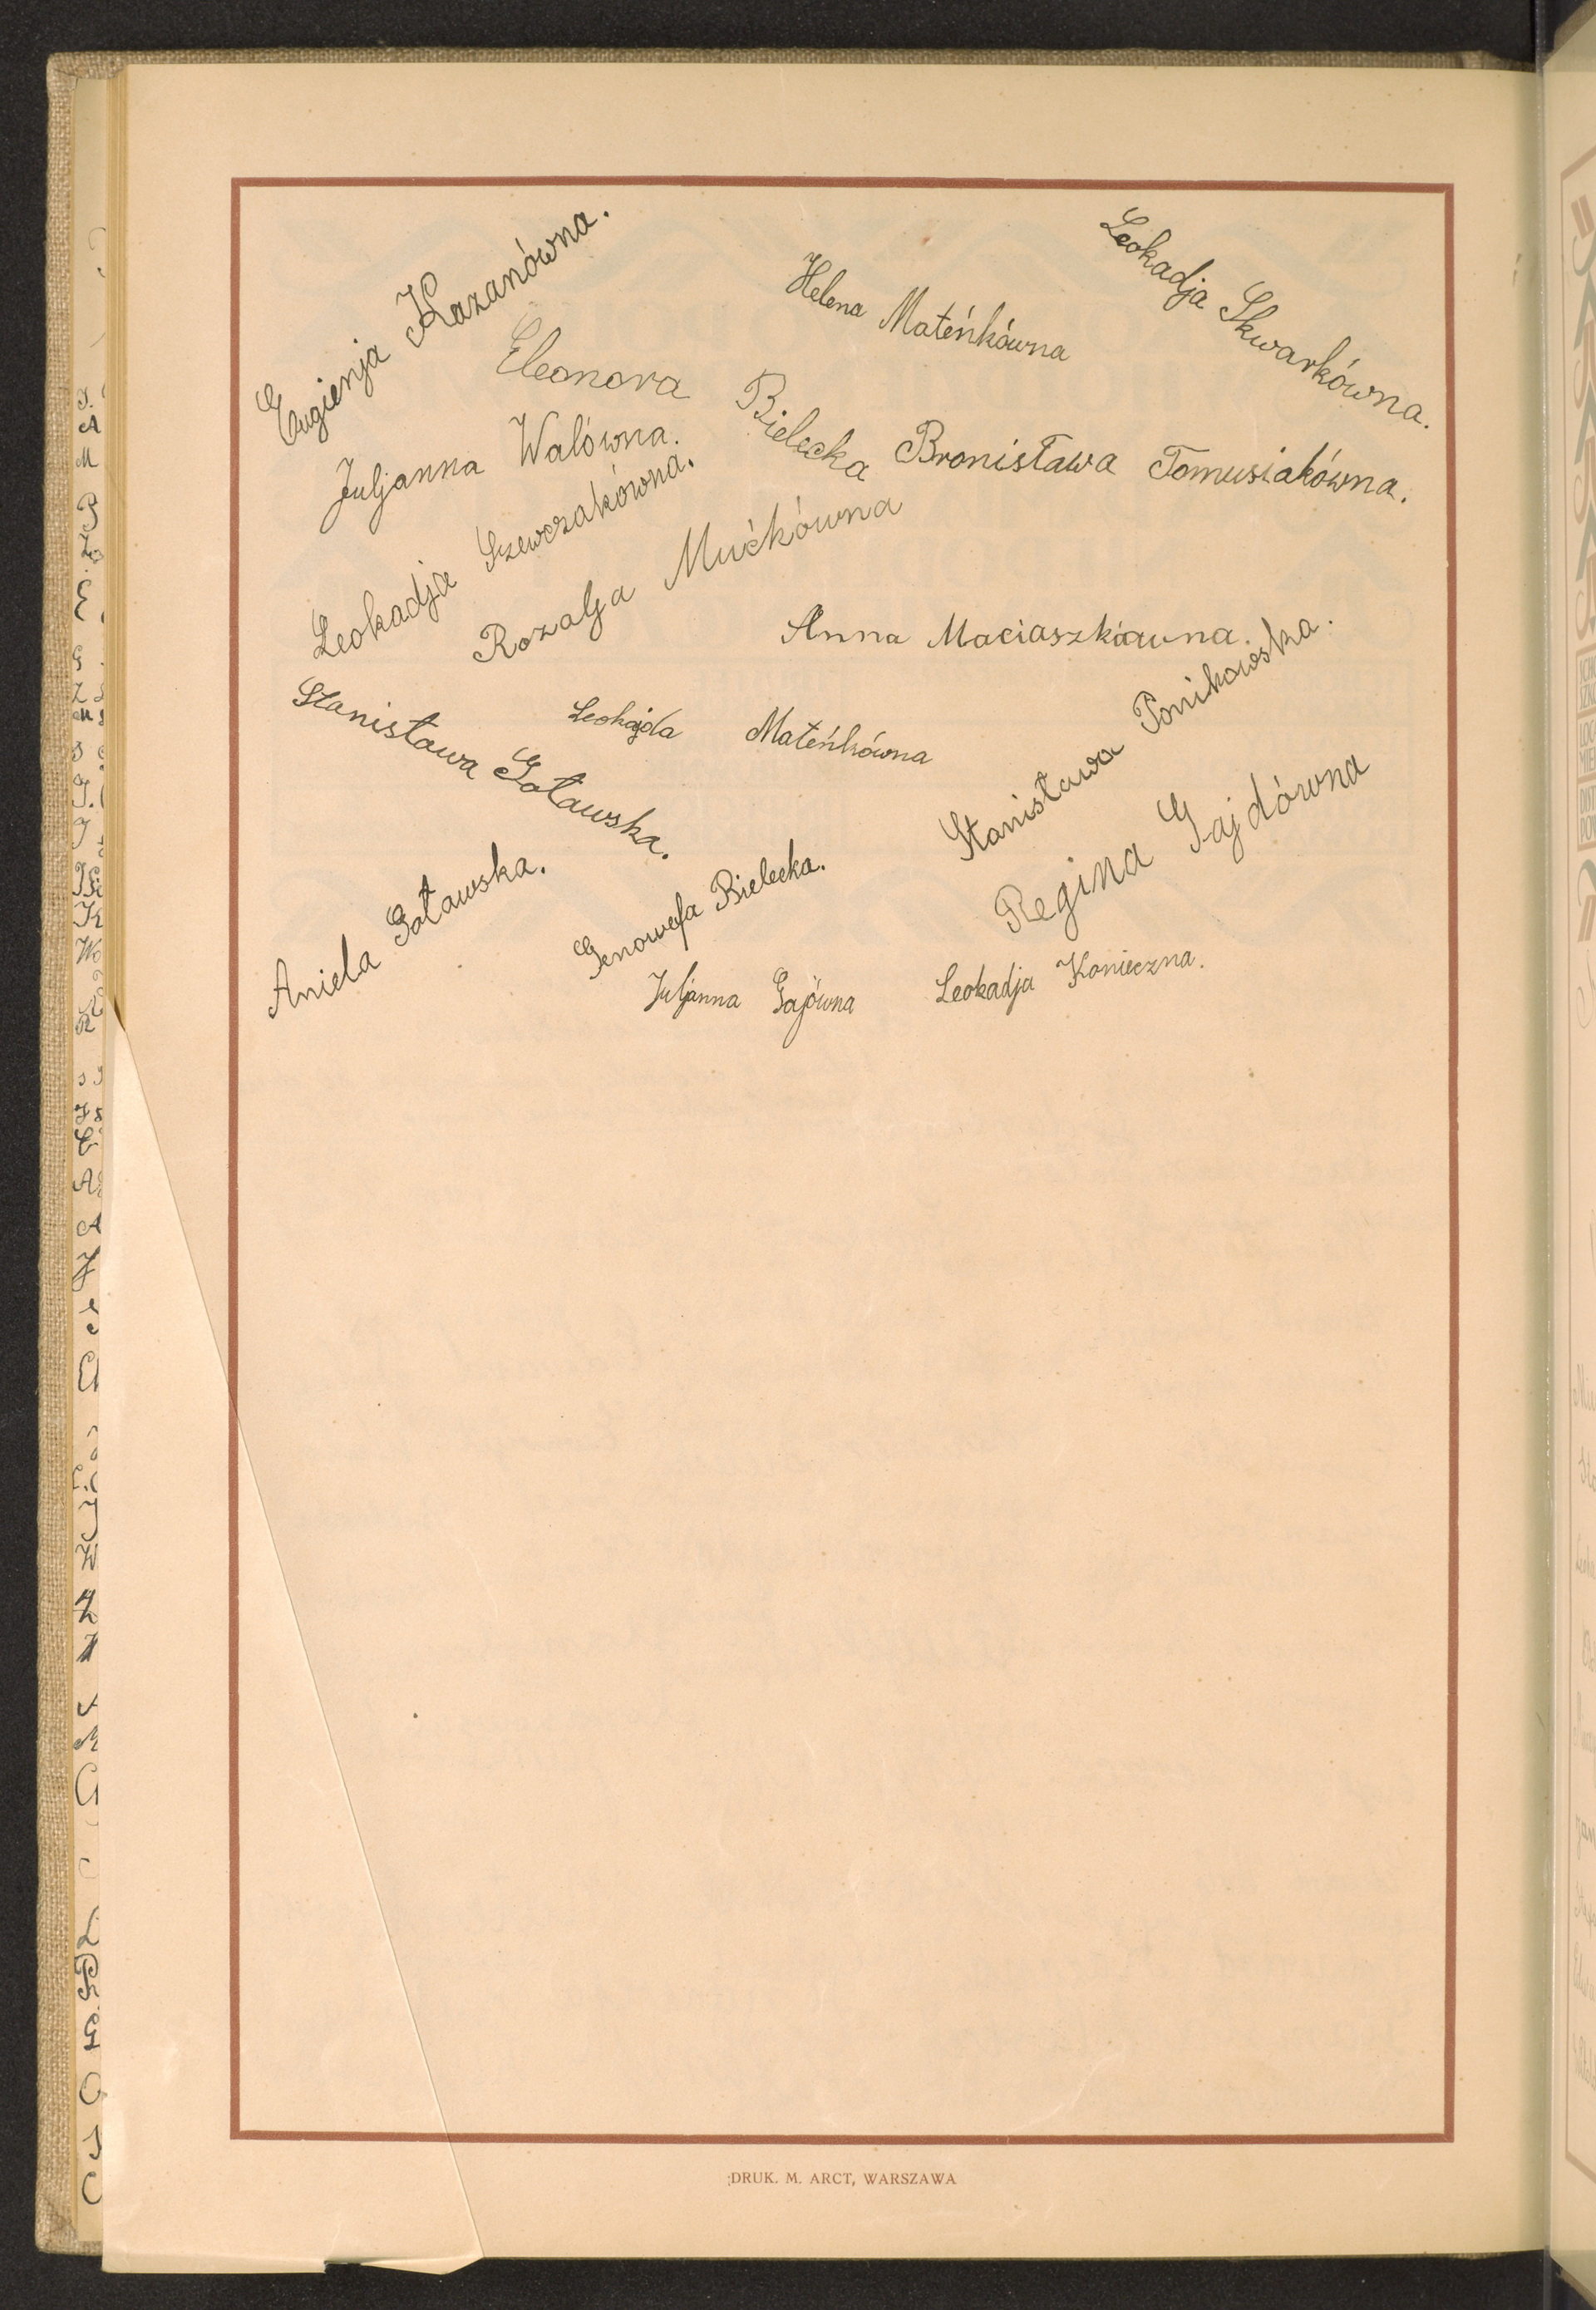 Eugienja Kazanówna.
Helena Mateńkówna
Leokadja Skwarkówna.
Eleonora Bielecka
Juljanna Walówna.
Bronisława Tomusiakówna.
Leokadja Szewczakówna.
Rozalja Mućkówna
Anna Maciaszkówna.
Stanisława Goławska.
Leokajda Mateńkówna
Stanisława Ponikowska.
Regina Gajdówna
Aniela Goławska.
Genowefa Bielecka.
Juljanna Gajówna
Leokadja Konieczna.
DRUK. M. ARCT, WARSZAWA